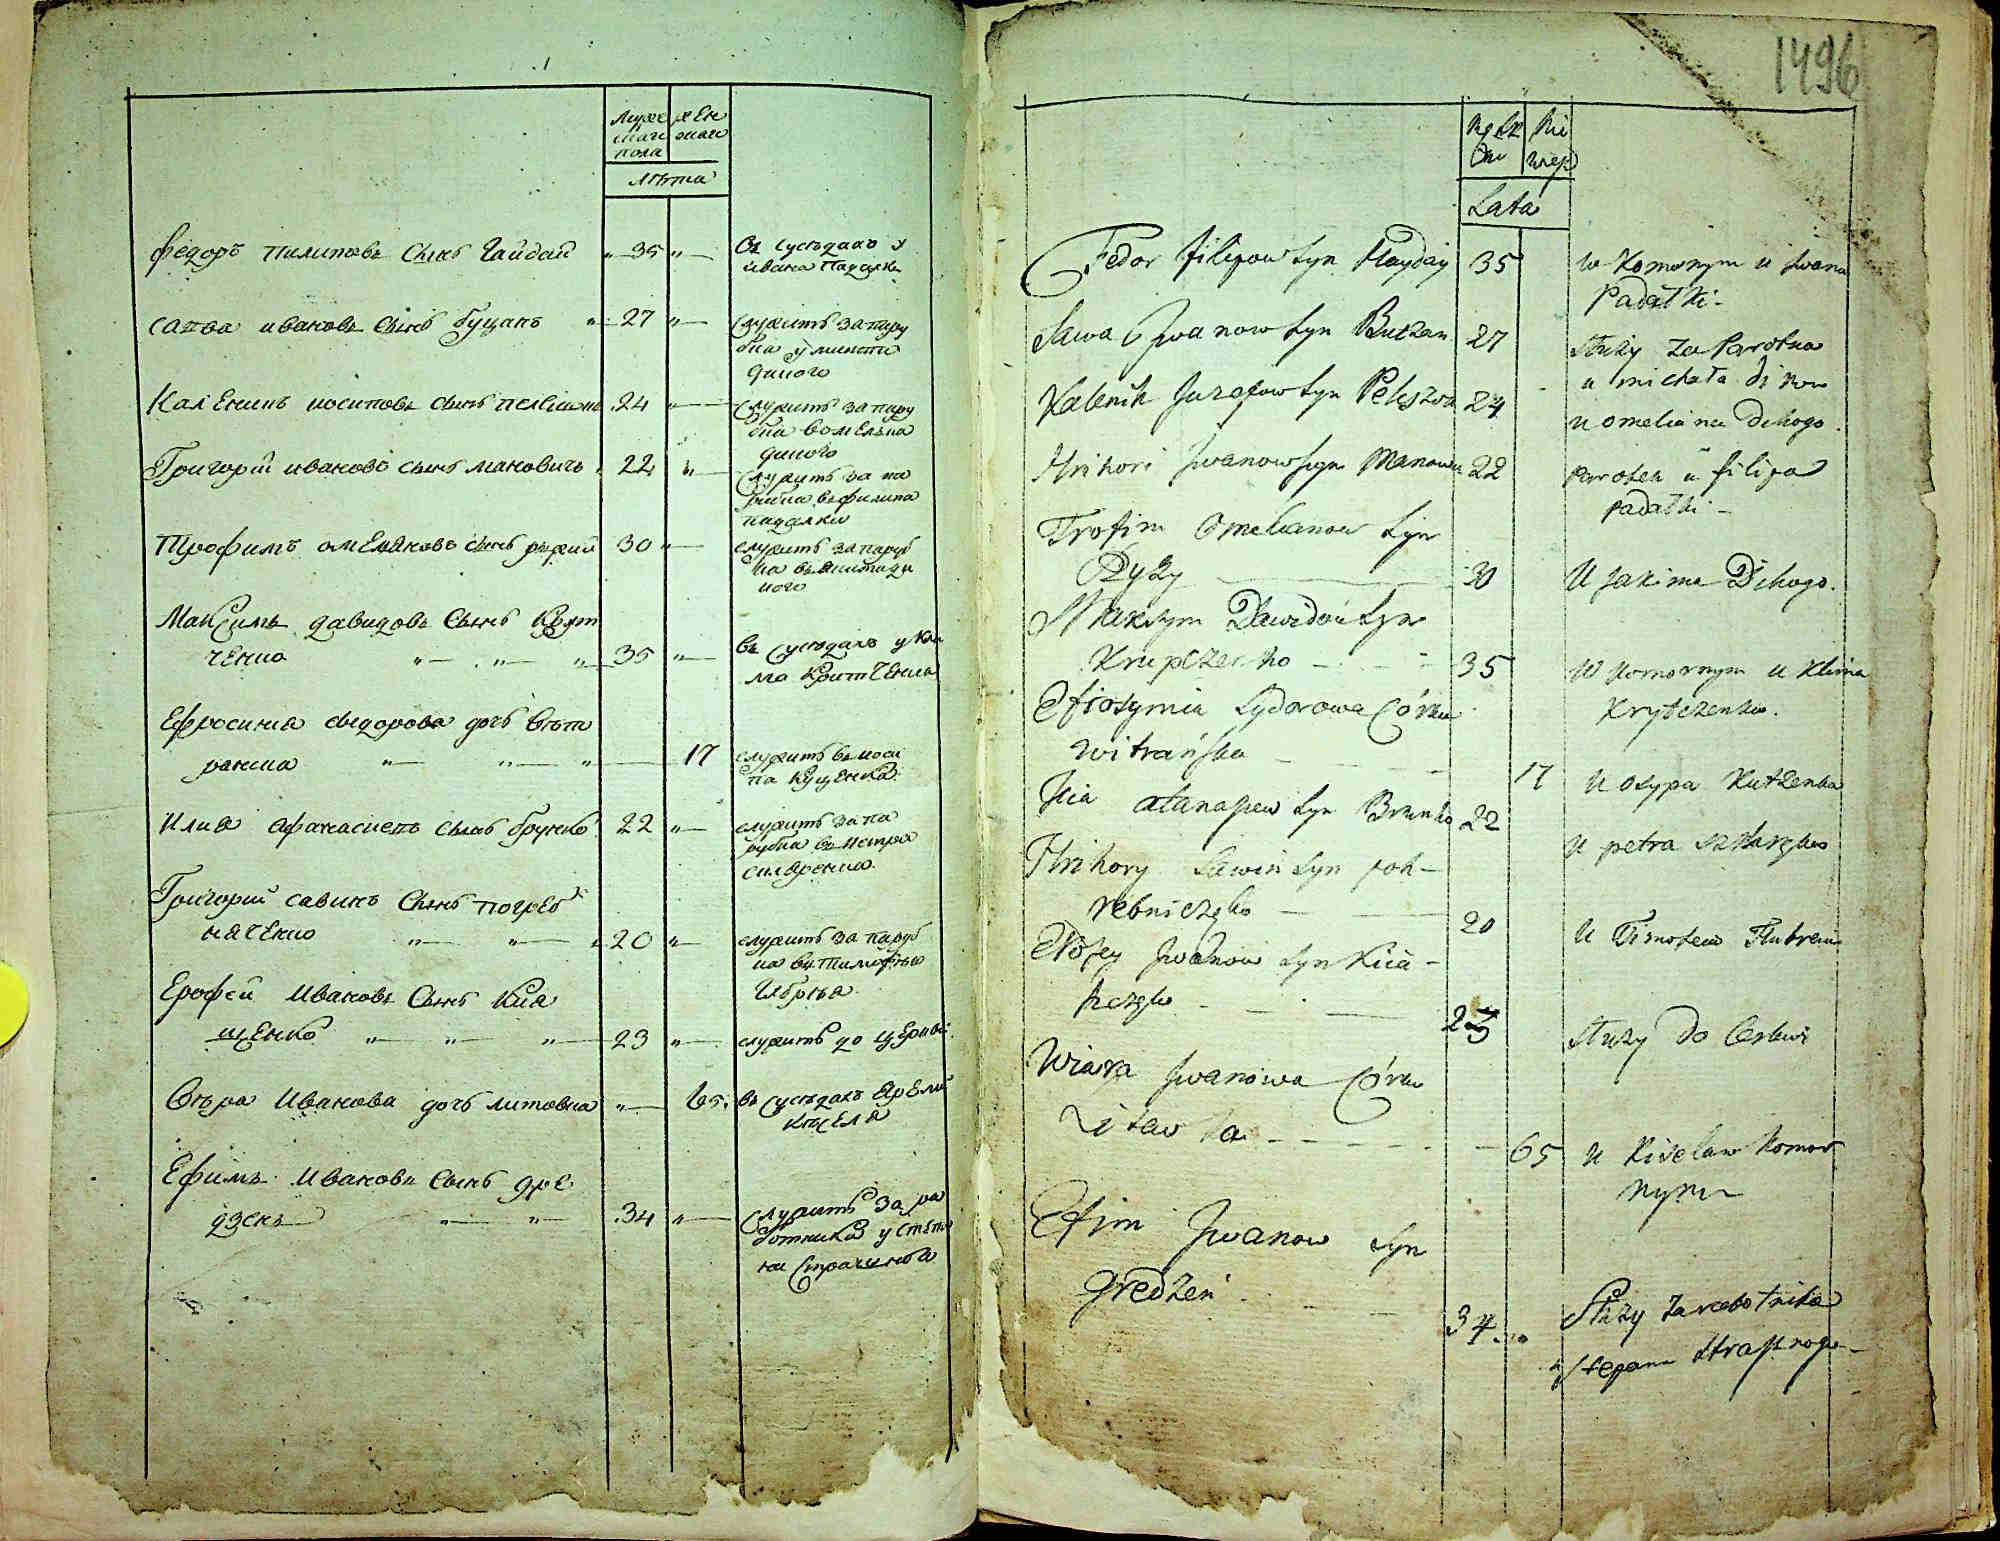 Муже
скаго
пола
жен
скаго
лѣта
Федоръ Пилиповъ сынъ Гайдай 35
въ сусѣдахъ у
ивана Падалки
савва ивановъ сынъ буцанъ 27
служитъ за пару
бка у михаила
дикого
Каленикъ иосиповъ сынъ 24
служитъ за пару
бка въ омеляна
дикого
Григорий ивановъ сынъ мановичъ 22
служитъ за па
рубка въ филипа
падалки
Трофимъ омеляновъ сынъ рижий 30
служитъ за паруб
ка въ якима ди
кого
Максимъ давидовъ сынъ Крут
ченко 35
въ сусѣдахъ у Кли
ма Критченка
Ефросиния сидорова дочь вѣт
ранска 17
служитъ въ иоси
па куценка
Илия афанасиевъ сынъ брунко 22
служитъ за па
рубка въ петра
Григорий савинъ сынъ погреб
наченко 20
служитъ за паруб
ка въ тимофѣя
Ерофей Ивановъ сынъ Кия
щенко 23
служитъ до церкви
Вѣра Иванова дочь литовка 65
въ сусѣдахъ
киселя
Ефимъ Ивановъ сынъ дре
дзенъ 34
служитъ за ра
ботника у степа
на страшного
1496
Lata
Fedor filipow syn Hayday 35
w Komornym u Iwana
Padałki
Sawa Iwanow syn Butzan 27
Służy za Parobka
u michała dikow
Kalenik Jozefow syn 24
u omeliana Dikogo
Hrihori Iwanow syn Manowicz 22
Parobek u filipa
padałki
Trofim Omelianow syn
Ryży 30
U Jakima Dikogo
Maksym Dawidow syn
Krupczenko 35
W Komornym u Klima
Krytczenka
Efrosymia Sydorowa Córka
witrańska 17
U osypa Kutzenka
Ilia atanasiew syn Brunko 22
U petra
Hrihory Sawin syn poh-
rebniczenko 20
U Timofeia
Erofey Iwanow syn Kiia-
szczenko 23
Służy do Cerkwi
Wiara Iwanowa Córka
Litawka 65
U Kiselaw Komor
nym
Efim Iwanow syn
gredzen 34
Służy za rabotnika
u Stepana Strasznogo